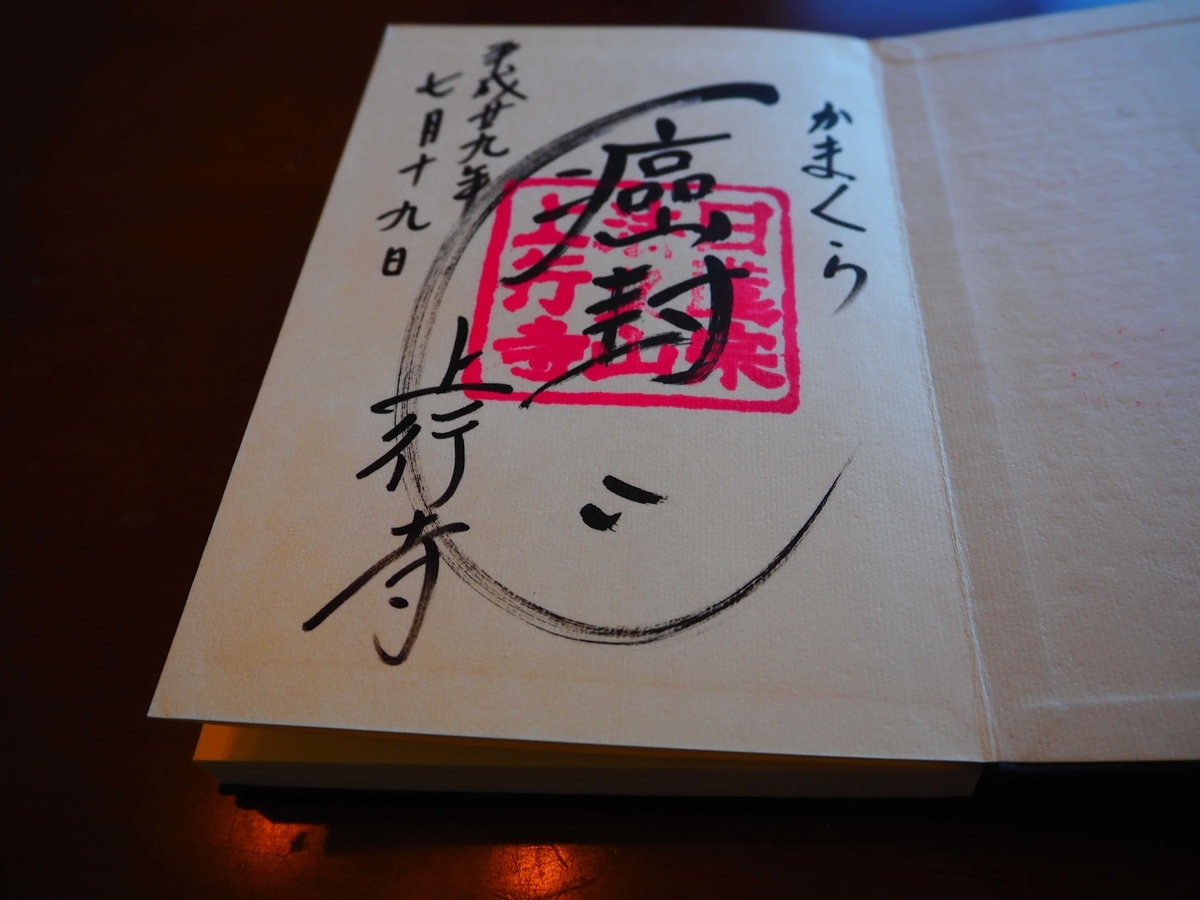 かまくら
癌封じ
上行寺
平成廿九年
七月十九日
日蓮宗
法久山
上行寺